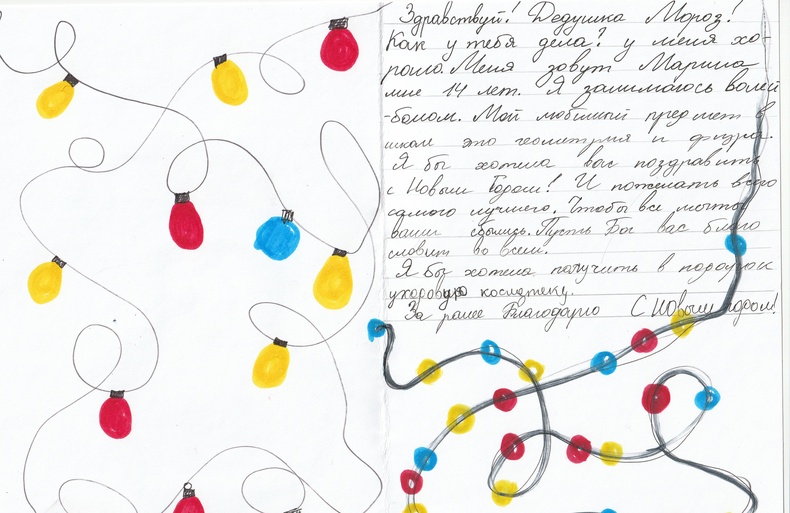 Здравствуй! Дедушка Мороз!
Как у тебя дела? у меня хо-
рошо. Меня зовут Марина
мне 14 лет. Я занимаюсь волей
-болом. Мой любимый предмет в
школе это геометрия и физра.
Я бы хотела вас поздравить
с Новым Годом! И пожелать всего
самого лучшего. Чтобы все мечты
ваши сбылись. Пусть Бог вас благо
словит во всем.
Я бы хотела получить в подарок
уходовую косметику.
За ранее Благодарю С Новым годом!